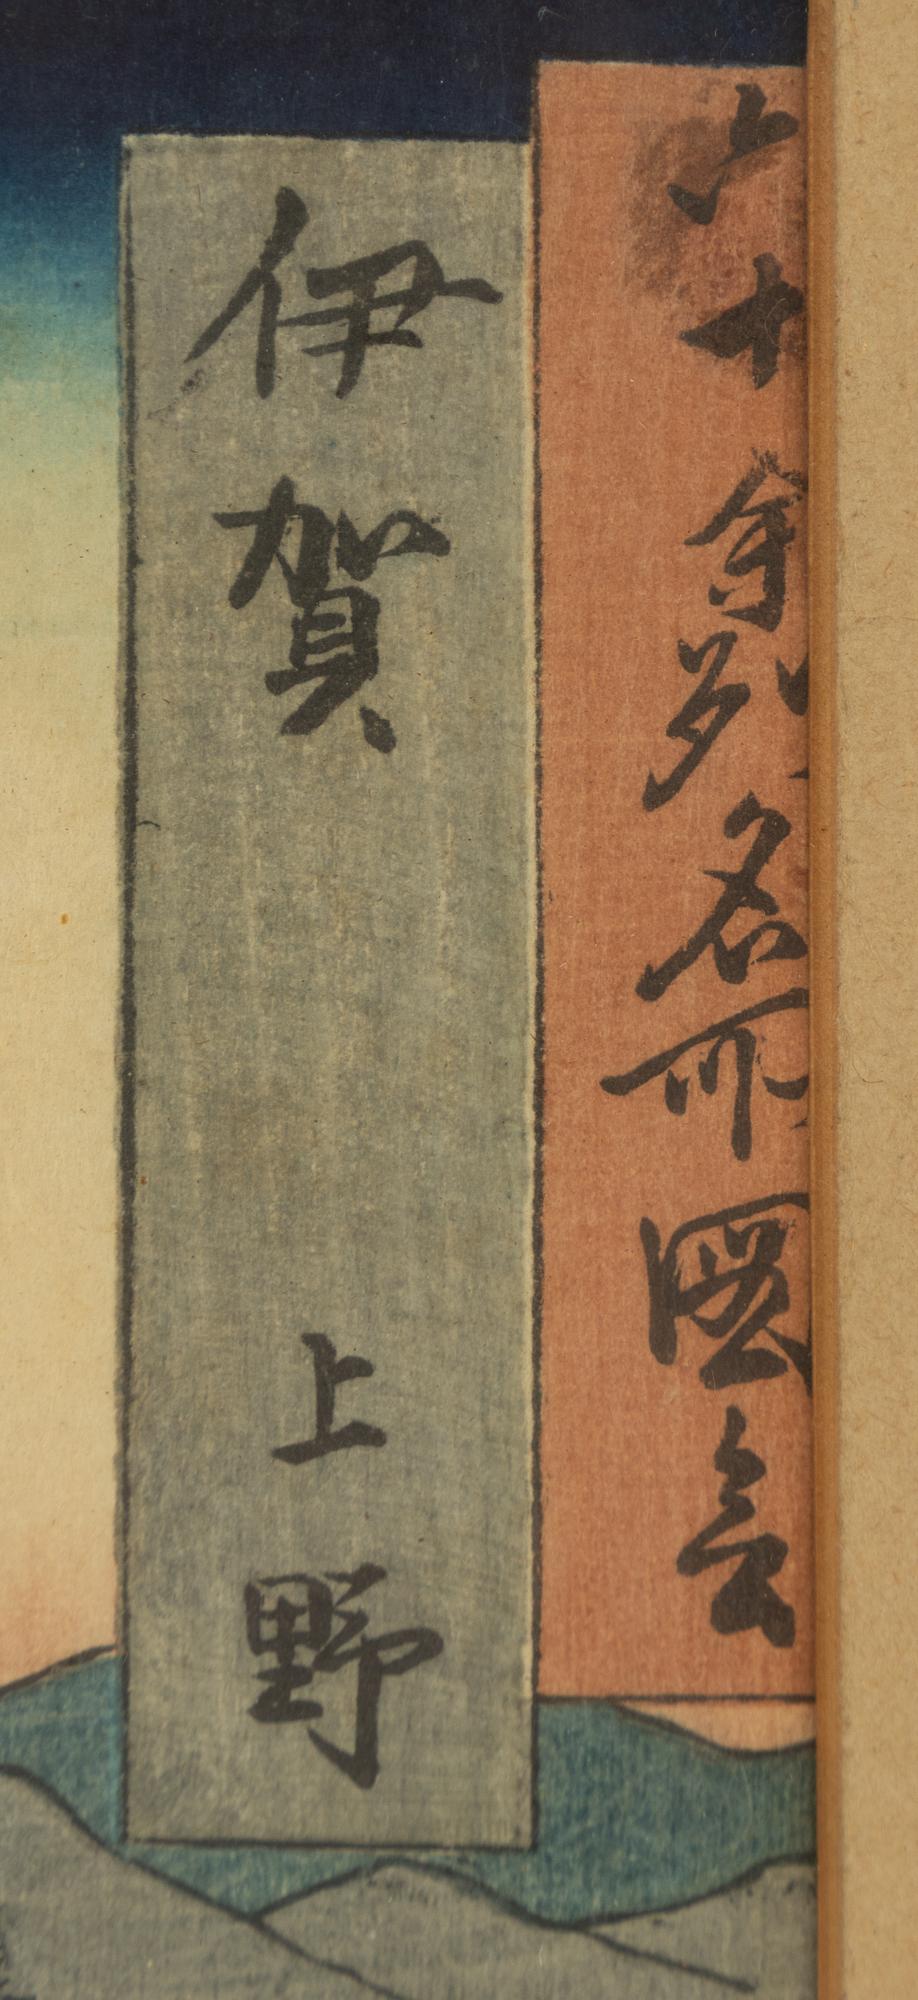 六十余州名所圖会
伊賀 上野